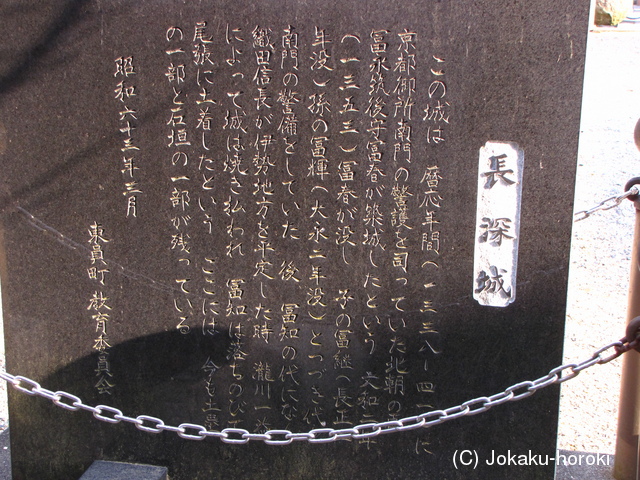 長深城
この城は 暦応年間(一三三八-四一)に
京都御所南門の警護を司っていた北朝の
冨永筑後守富春が築城したという 文和二年
(一三五三)富春が没し 子の冨継(長正
年没)孫の冨輝(大永二年没)とつづき代
南門の警備をしていた 後 冨知の代にな
織田信長が伊勢地方を平定した時 瀧川一益
によって城は焼き払われ 冨知は落ちのび
尾張に土着したという ここには 今も土塁
の一部と石垣の一部が残っている
昭和六十三年三月
東員町教育委員会
(C) Jokaku-horoki